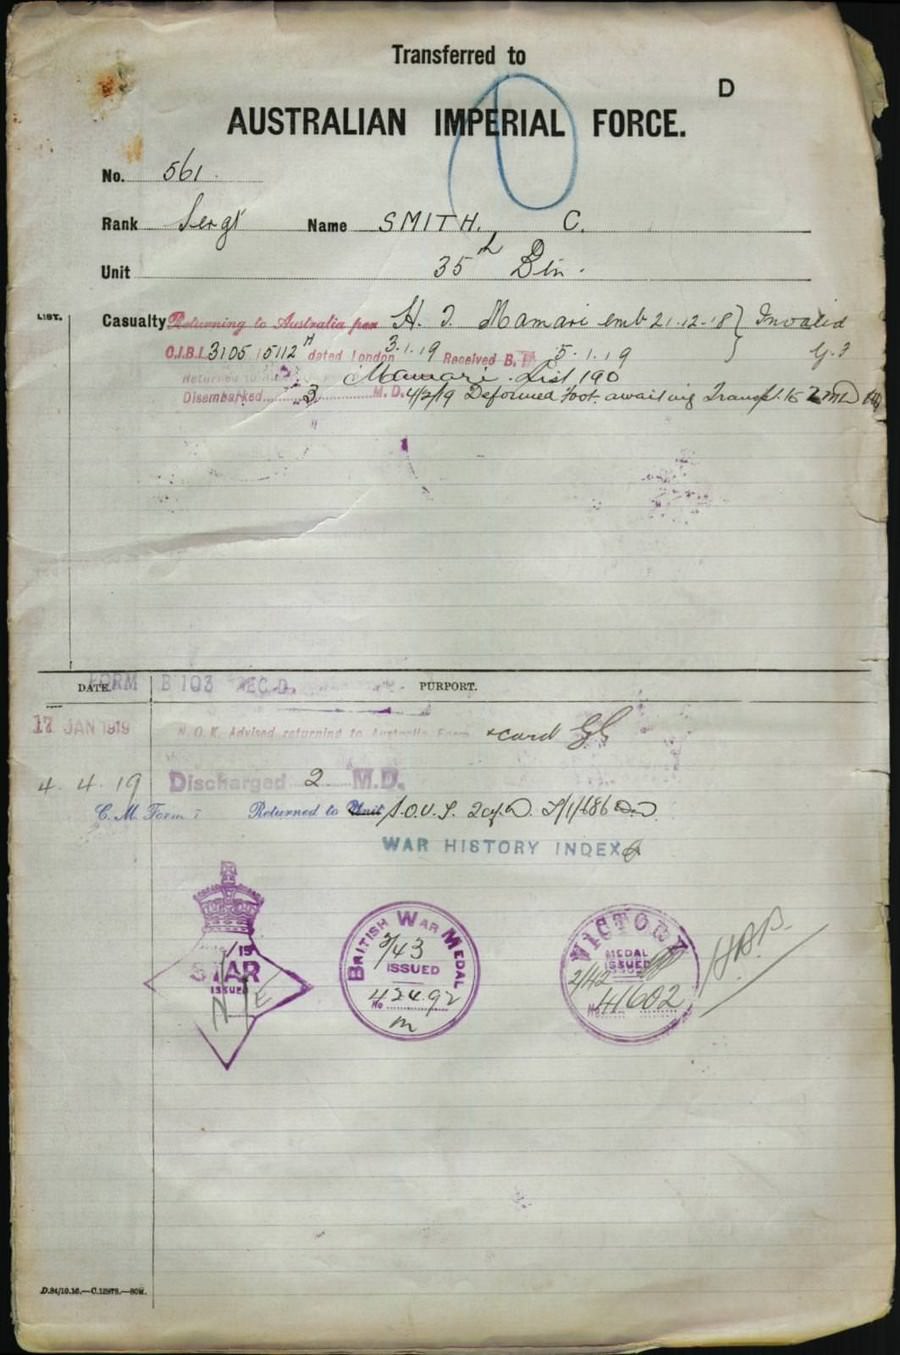 Transferred to
D
AUSTRALIAN IMPERIAL FORCE.
No. 561.
Rank Sergt Name SMITH. C.
Unit 35th Btn.
LIST.
Casualty Returning to Australia per H. T. Mamari emb 21-12-18 } Invalid
C.I.B.I. 3105 15112 dated London 3.1.19 Received B. 5.1.19
Returned to Mamari. List 190
Disembarked 3 M.D. 4/2/19 Deformed foot. awaiting Transpt. to 2 MD
DATE. PURPORT.
FORM B 103 REC.D.
17 JAN 1919 N.O.K. Advised returning to Australia Form + card
4.4.19 Discharged 2 M.D.
C.M. Form Returned to Unit
WAR HISTORY INDEX
/15
STAR
ISSUED
N/E
BRITISH WAR MEDAL
3/43
ISSUED
No 42492
m
VICTORY
MEDAL
ISSUED
2/42
No. 41602
D.84/10.16.—C.12878.—50M.